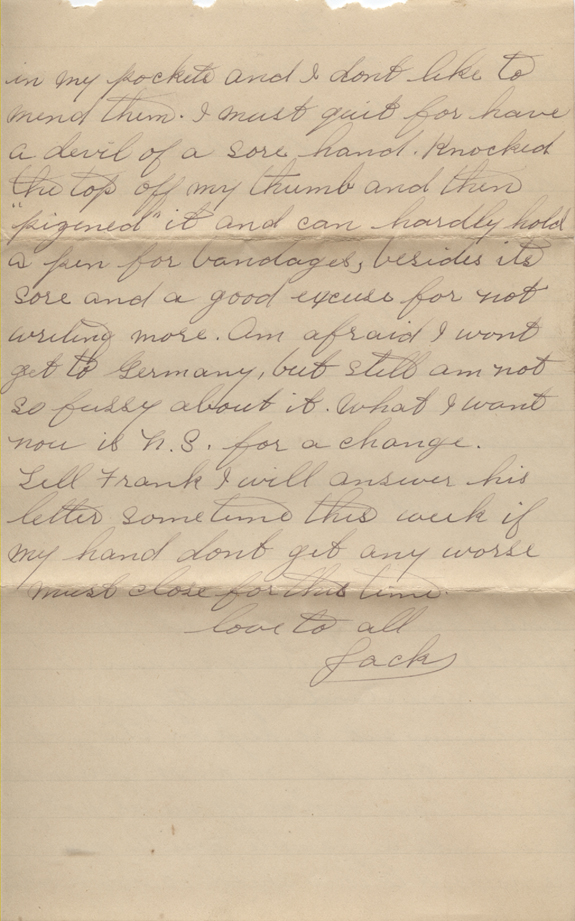 in my pockets and I dont like to
mend them. I must quit for have
a devil of a sore hand. Knocked
the top off my thumb and then
"pizened" it and can hardly hold
a pen for bandages, besides its
sore and a good excuse for not
writing more. Am afraid I wont
get to Germany, but still am not
so fussy about it. What I want
now is N.S. for a change.
Tell Frank I will answer his
letter sometime this week if
my hand dont get any worse
must close for this time.
love to all
Jack